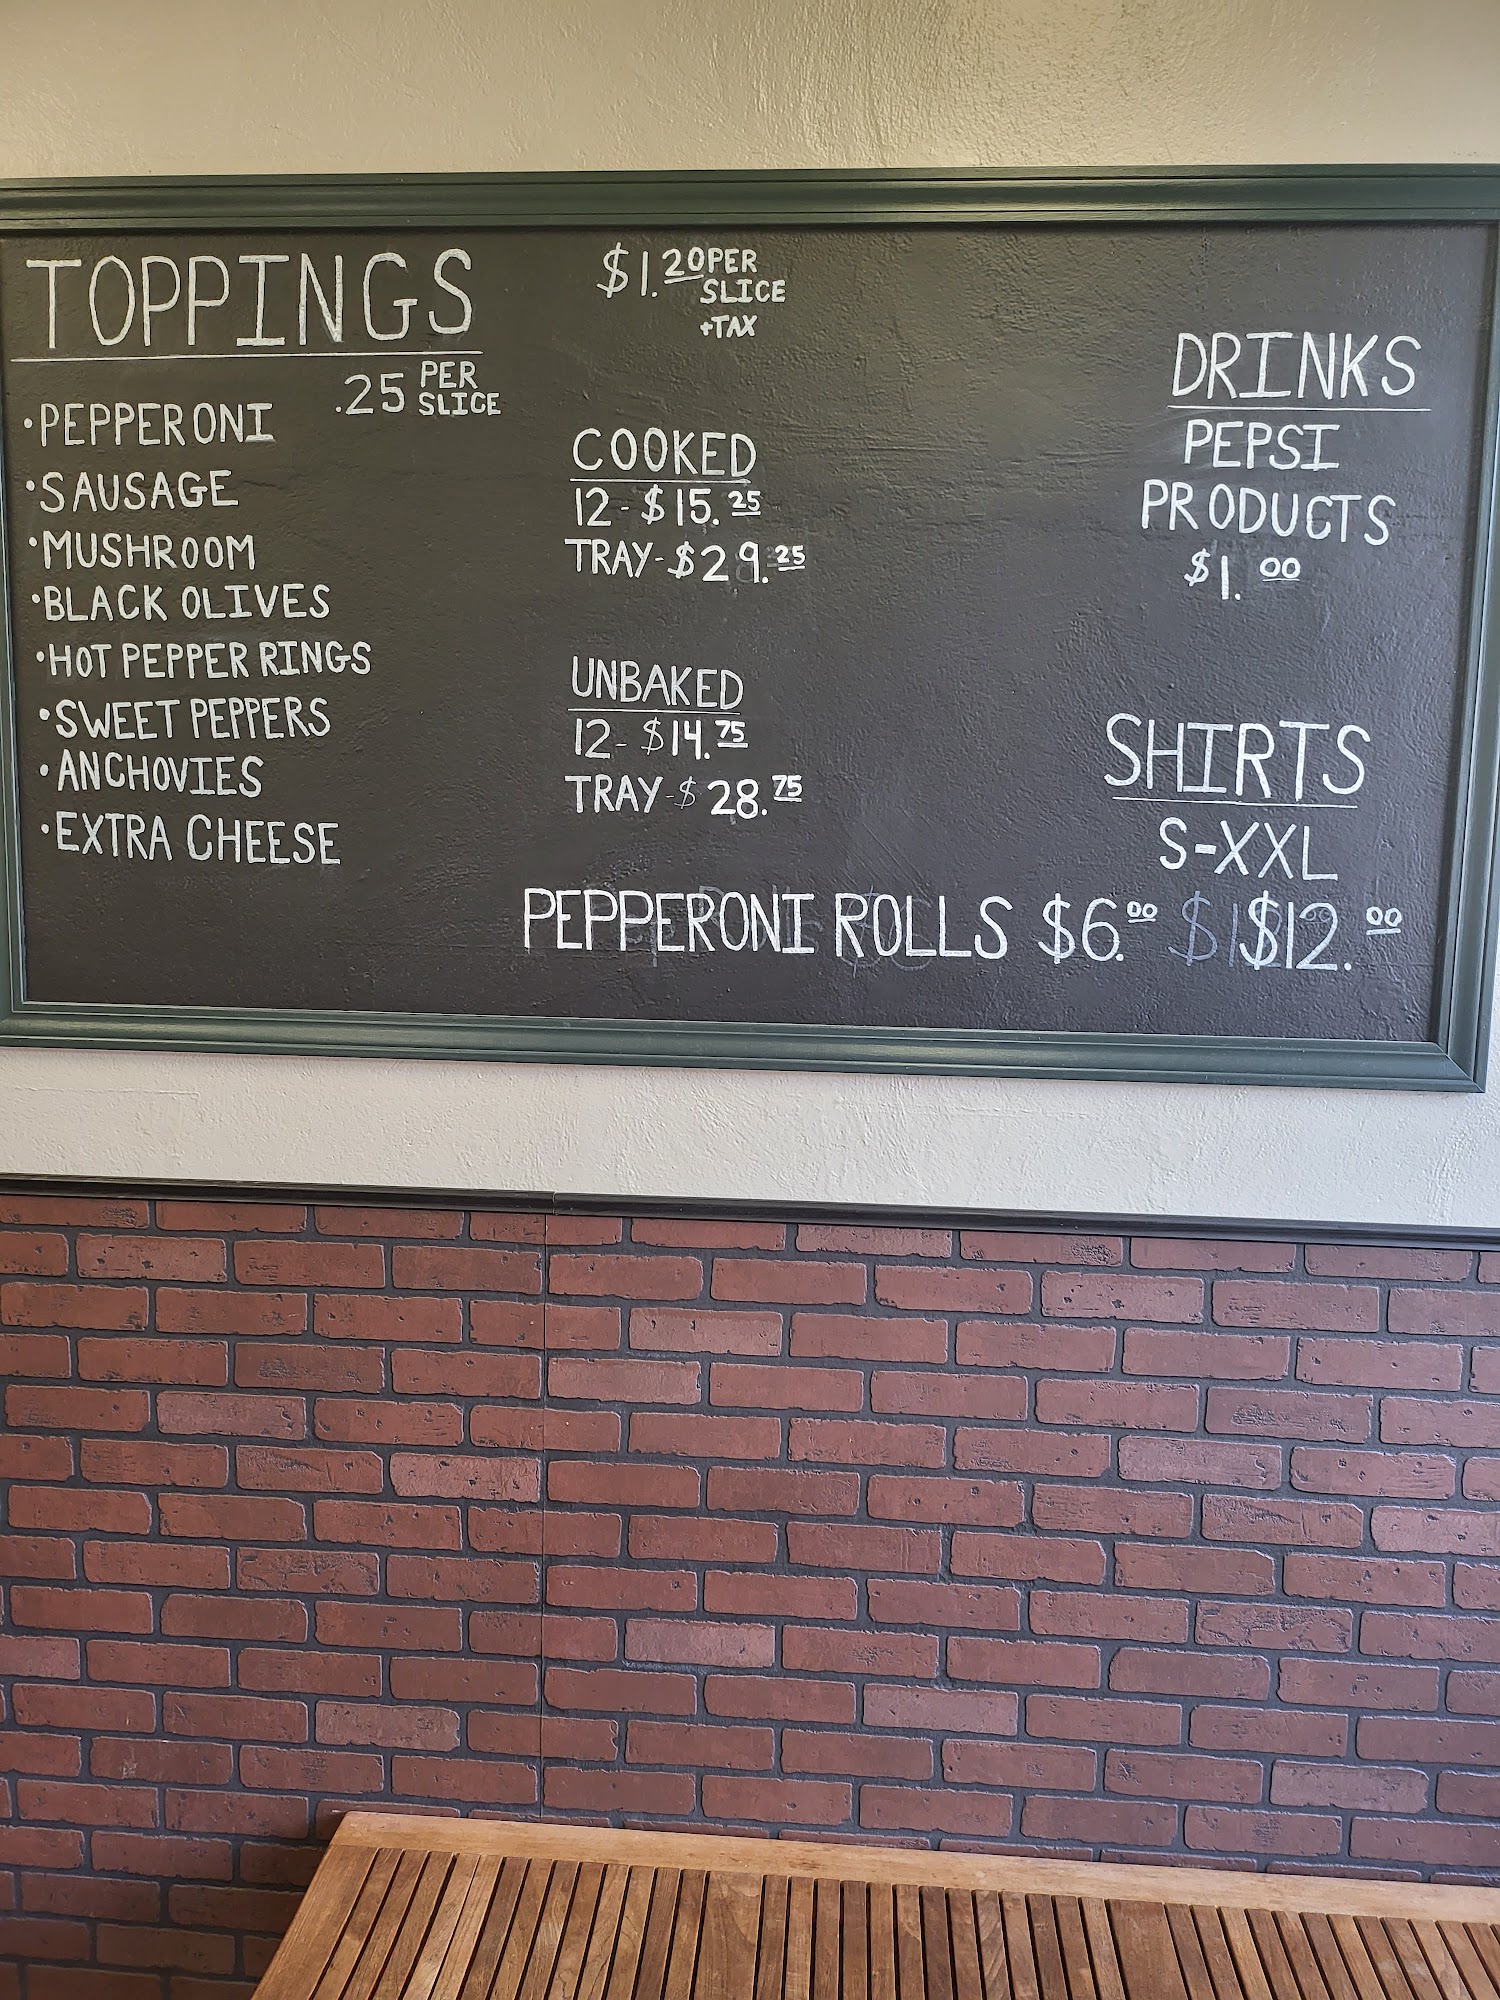 TOPPINGS
.25 PER SLICE
•PEPPERONI
•SAUSAGE
•MUSHROOM
•BLACK OLIVES
•HOT PEPPER RINGS
•SWEET PEPPERS
•ANCHOVIES
•EXTRA CHEESE
$1.20 PER
SLICE
+TAX
COOKED
12 - $15.25
TRAY - $29.25
UNBAKED
12 - $14.75
TRAY - $28.75
PEPPERONI ROLLS $6.00
DRINKS
PEPSI
PRODUCTS
$1.00
SHIRTS
S-XXL
$12.00